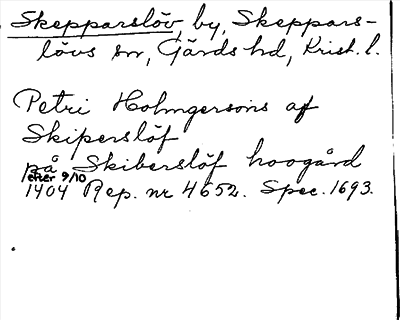 Skepparslöv, by, Skeppars-
lövs sn, Gärds hd, Krist. l.
Petri Holmgersons af
Skiperslöf
på Skiberslöf hoogård
efter 9/10
1404 Rep. nr 4652. Spec. 1693.